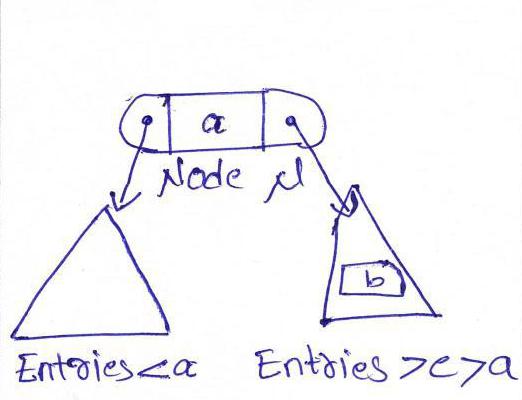 a
Node μ
b
Entries<a
Entries >e>a